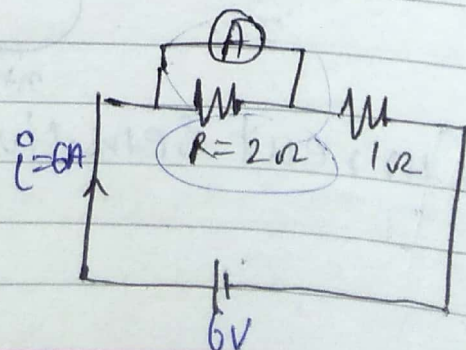 A
i=6A
R=2Ω
1Ω
6V